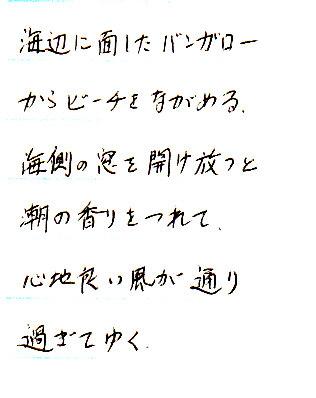 海辺に面したバンガロー
からビーチをながめる.
海側の窓を開け放つと
潮の香りをつれて.
心地良い風が通り
過ぎてゆく.